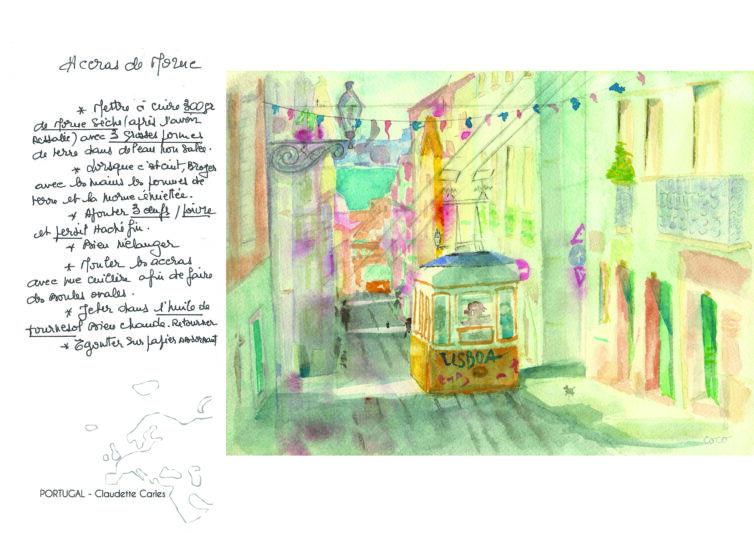 Accras de Morue
* Mettre à cuire 300gr
de Morue Sèche (après l'avoir
dessalée) avec 3 grosses pommes
de terre dans de l'eau non salée.
* Lorsque c'est cuit, Broyer
avec les mains les pommes de
terre et la morue émiettée.
* Ajouter 3 œufs / poivre
et persil Haché fin.
* Bien Mélanger
* Mouler les accras
avec une cuillère afin de faire
des boules ovales.
* Jeter dans l'huile de
tournesol bien chaude. Retourner
* Egoutter sur papier absorbant
PORTUGAL - Claudette Carles
LISBOA
coco